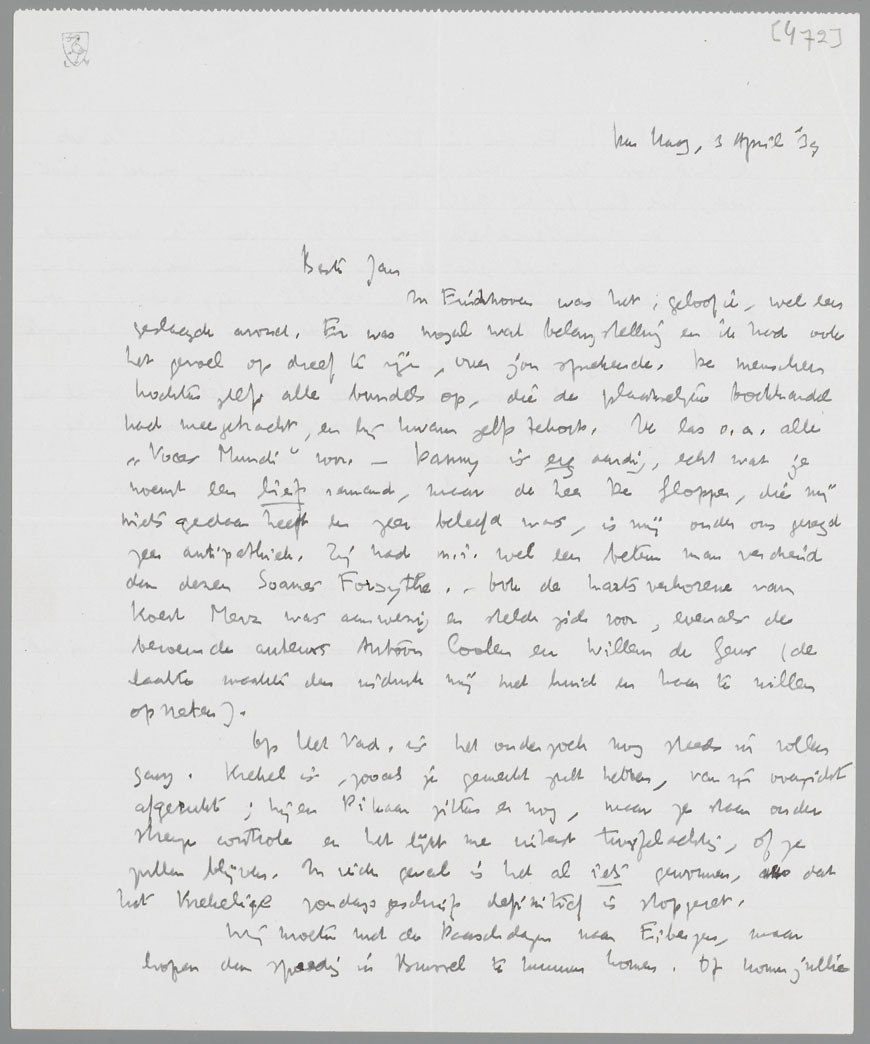 [472]
Den Haag, 3 April '39
Beste Jan
In Eindhoven was het, geloof ik, wel een
geslaagde avond. Er was nogal wat belangstelling en ik had ook
het gevoel op dreef te zijn, voor jou sprekende. De menschen
kochten zelfs alle bundels op, die de plaatselijke boekhandel
had meegebracht, en hij kwam zelfs tekort. Ik las o.a. alle
„Voces Mundi" voor. — Fanny is erg aardig, echt wat je
noemt een lief iemand, maar de heer De Slopper, die mij
niets gedaan heeft en zeer beleefd was, is mij onder ons gezegd
zeer antipathiek. Zij had m.i. wel een betere man verdiend
dan dezen Soames Forsythe. - Ook de
Merz was aanwezig en stelde zich voor, evenals de
beroemde auteurs Antoon Coolen en Willem de Geus (de
laatste maakte den indruk mij met huid en haar te willen
opvreten).
Op Het Vad. is het onderzoek nog steeds in vollen
gang. Krekel is, zooals je gemerkt zult hebben, van zijn overzicht
afgerukt; hij en Pikaar zitten er nog, maar ze staan onder
strenge controle en het lijkt me uiterst twijfelachtig, of ze
zullen blijven. In ieder geval is het al iets gewonnen, dat
het Krekelige zondagsgeschrijf definitief is stopgezet.
Wij moeten met de Paaschdagen naar Eibergen, maar
hopen dan spoedig in Brussel te kunnen komen. Of komen jullie